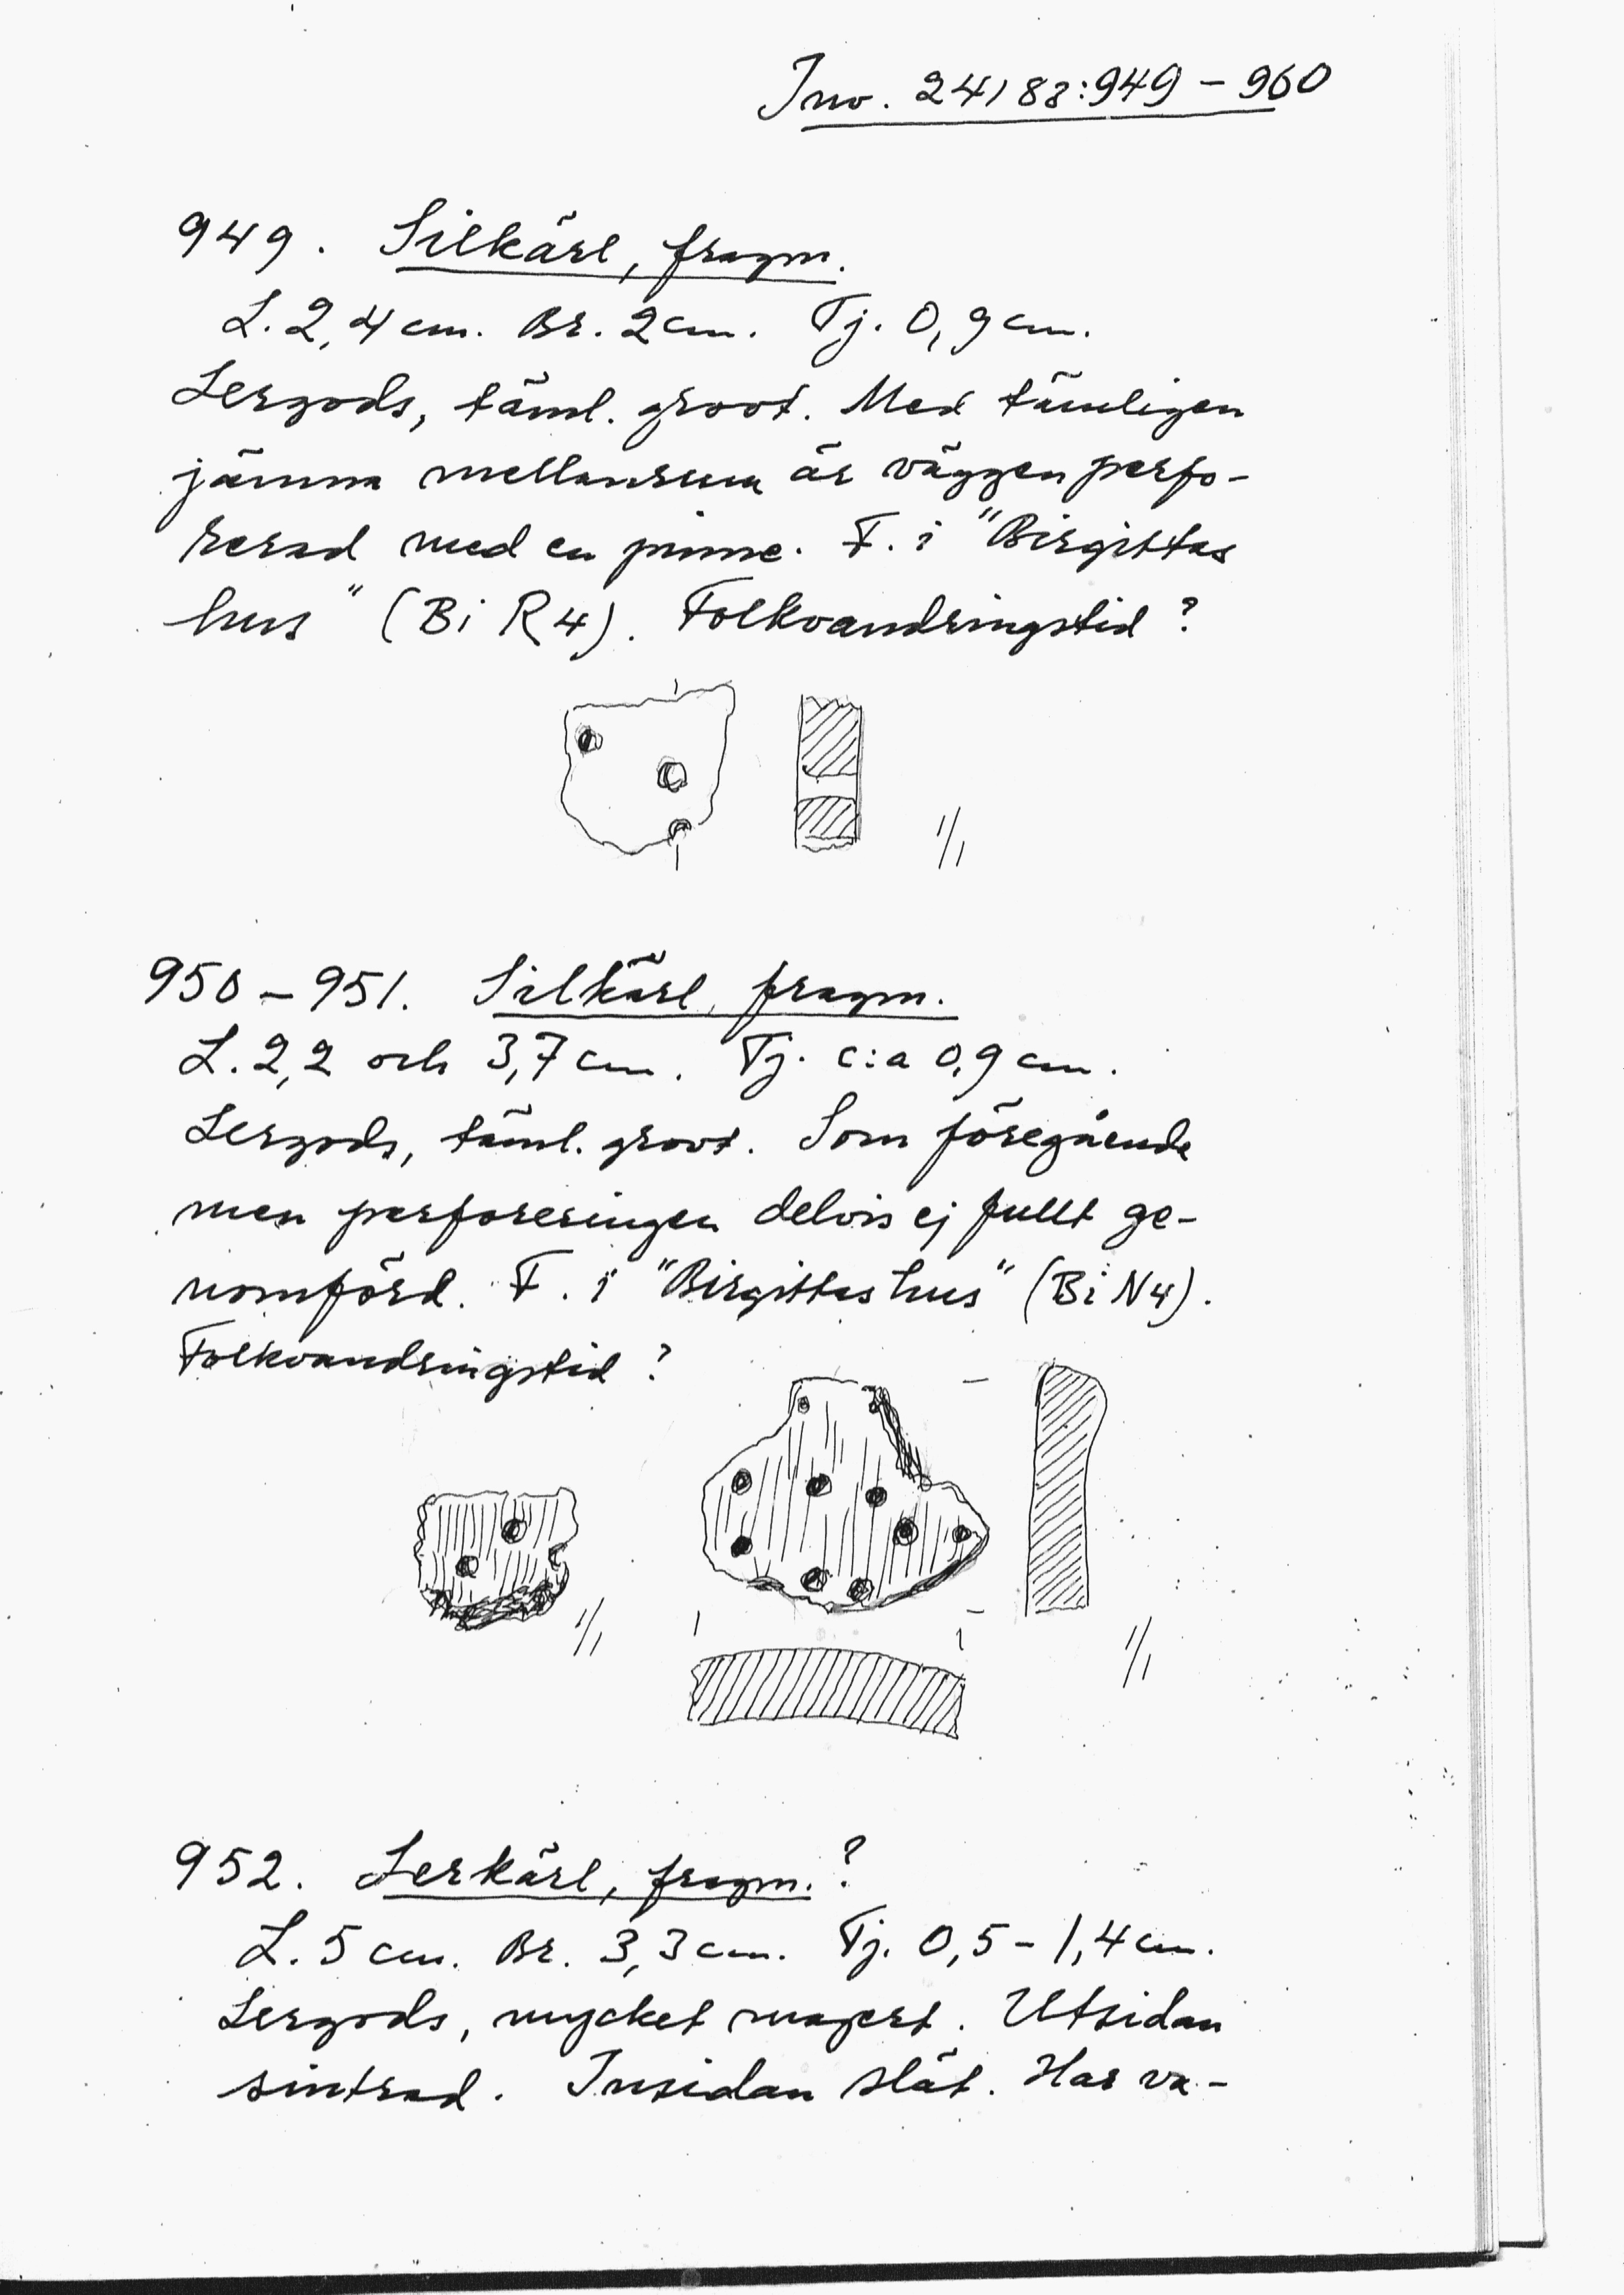 Inv. 24183:949-960
949. Silkärl, fragm.
L. 2,4 cm. Br. 2 cm. Tj. 0,9 cm.
Lergods, täml. grovt. Med tämligen
jämna mellanrum är väggen perfo-
rerad med en pinne. F. i "Birgittas
hus" (Bi R4). Folkvandringstid?
1/1
950-951. Silkärl, fragm.
L. 2,2 och 3,7 cm. Tj. c:a 0,9 cm.
Lergods, täml. grovt. Som föregående
men perforeringen delvis ej fullt ge-
nomförd. F. i "Birgittas hus" (Bi N4).
Folkvandringstid?
1/1
1/1
952. Lerkärl, fragm.?
L. 5 cm. Br. 3,3 cm. Tj. 0,5-1,4 cm.
Lergods, mycket magert. Utsidan
sintrad. Insidan slät. Har va-